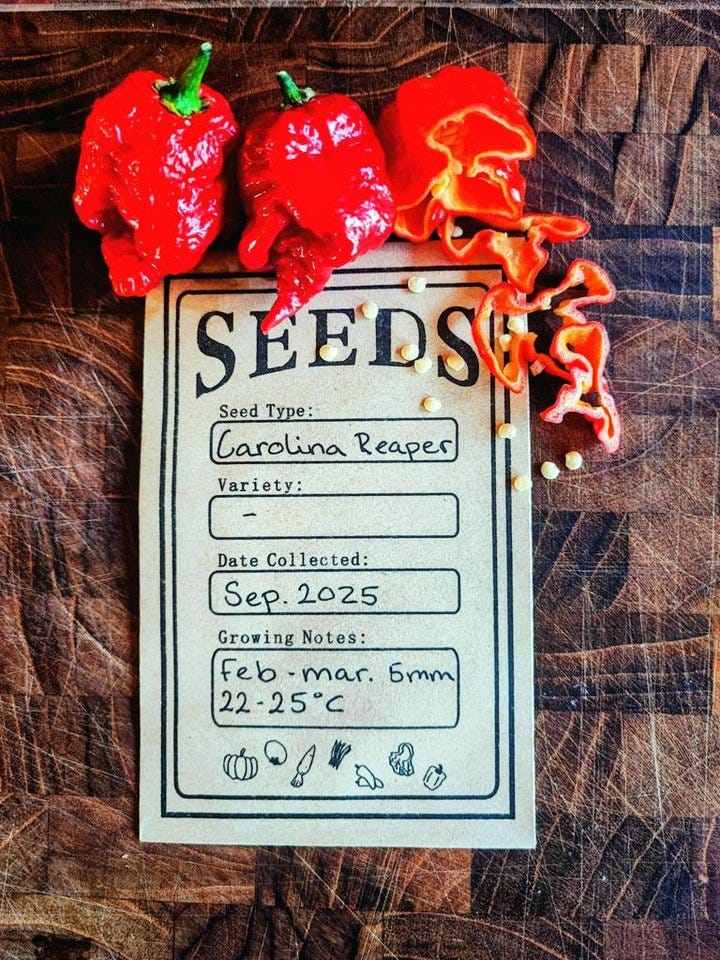 SEEDS
Seed Type:
Carolina Reaper
Variety:
-
Date Collected:
Sep. 2025
Growing Notes:
Feb - mar. 5mm
22-25°C